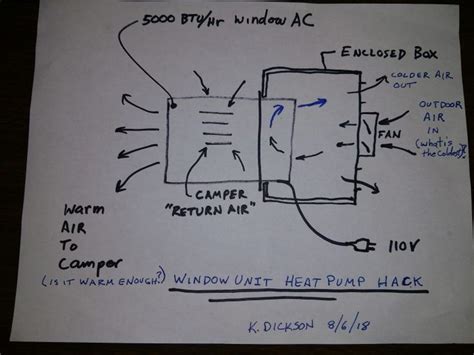 5000 BTU/Hr Window AC
ENCLOSED BOX
COLDER AIR
OUT
OUTDOOR
AIR
IN
(what is
the coldest?)
FAN
CAMPER
"RETURN AIR"
110V
Warm
AIR
To
Camper
(IS IT WARM ENOUGH?)
WINDOW UNIT HEAT PUMP HACK
K. DICKSON 8/6/18